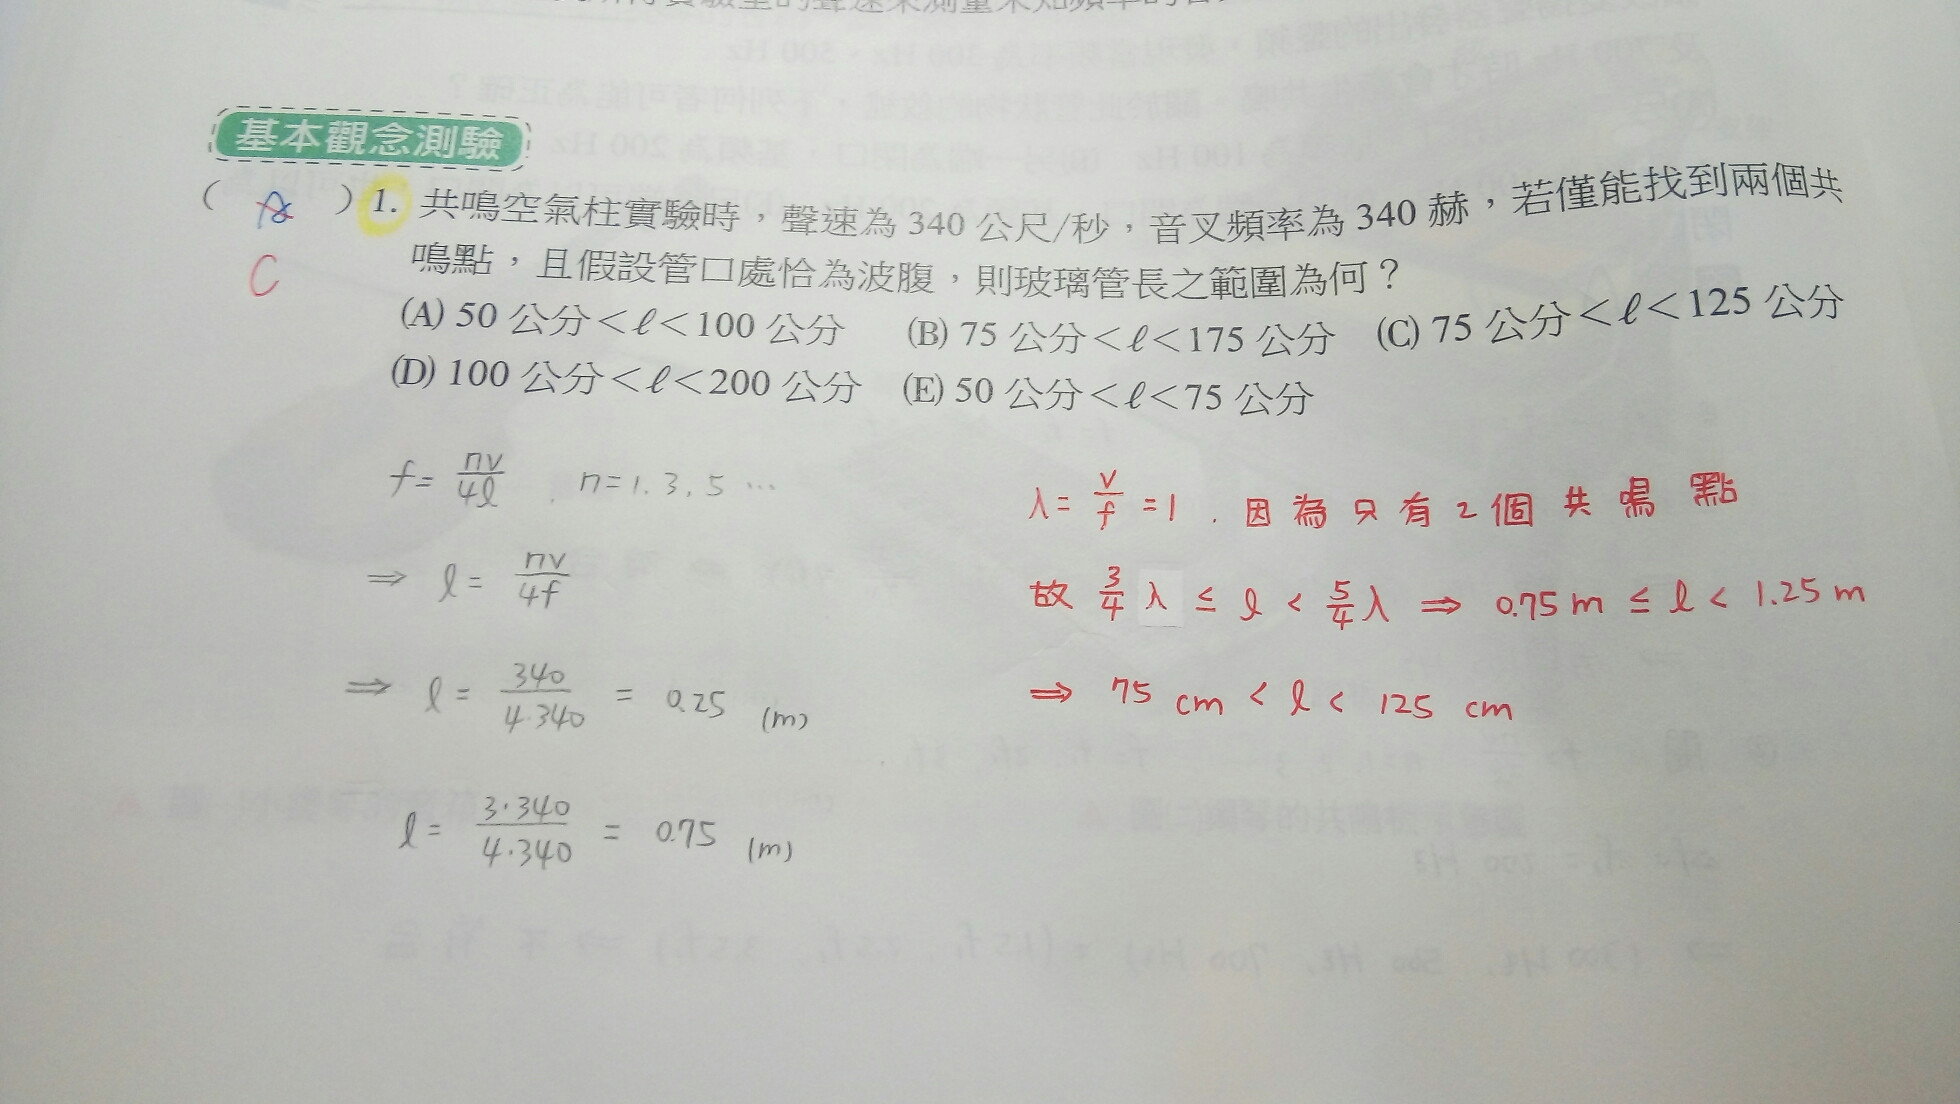 基本觀念測驗
( A ) 1. 共鳴空氣柱實驗時，聲速為 340 公尺/秒，音叉頻率為 340 赫，若僅能找到兩個共
C 鳴點，且假設管口處恰為波腹，則玻璃管長之範圍為何？
(A) 50 公分<ℓ<100 公分 (B) 75 公分<ℓ<175 公分 (C) 75 公分<ℓ<125 公分
(D) 100 公分<ℓ<200 公分 (E) 50 公分<ℓ<75 公分
f = nv/4ℓ , n=1. 3, 5 …
⇒ ℓ = nv/4f
⇒ ℓ = 340/4·340 = 0.25 (m)
ℓ = 3·340/4·340 = 0.75 (m)
λ = v/f = 1 . 因為只有2個共鳴點
故 3/4 λ ≤ ℓ < 5/4 λ ⇒ 0.75 m ≤ ℓ < 1.25 m
⇒ 75 cm < ℓ < 125 cm